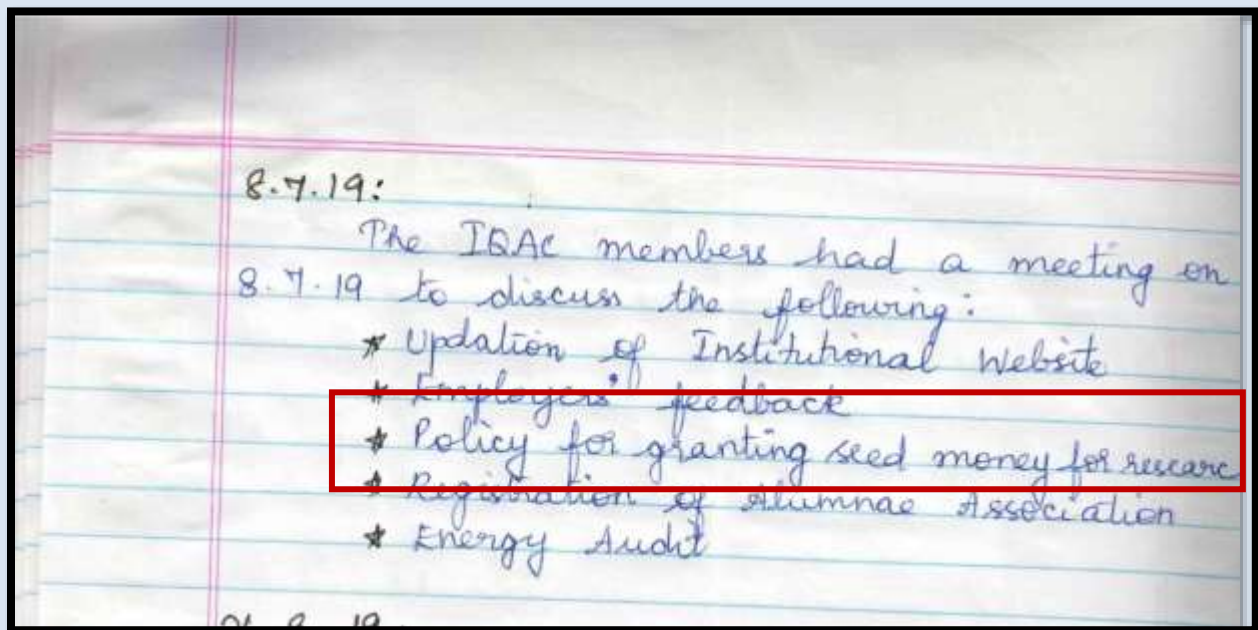 8.7.19:
The IQAC members had a meeting on
8.7.19 to discuss the following:
* Updation of Institutional Website
* Employers' feedback
* Policy for granting seed money for researc
* Registration of Alumnae Association
* Energy Audit